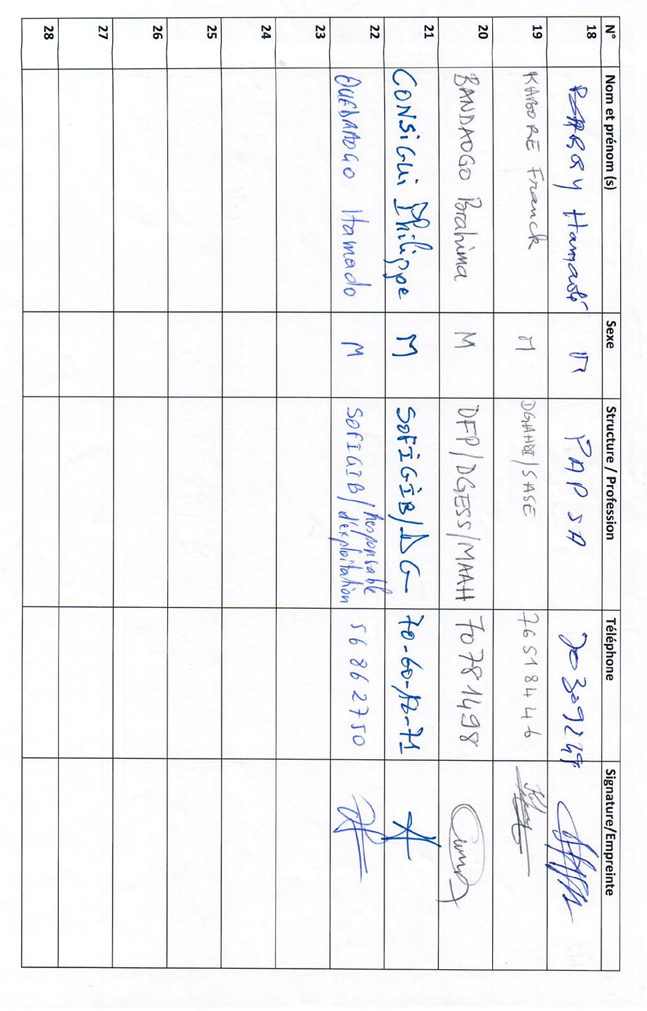 N° Nom et prénom (s) Sexe Structure / Profession Téléphone Signature/Empreinte
18 Hamadi M PAPSA
19 KABORE Franck M DGAHDI/SASE 76518446
20 BANDAOGO Ibrahima M DFP/DGESS/MAAH 70781498
21 CONSIGUI Philippe M SOFIGIB/DG 70-60-12-71
22 OUEDRAOGO Hamado M SOFIGIB/Responsable d'exploitation 56862750
23
24
25
26
27
28